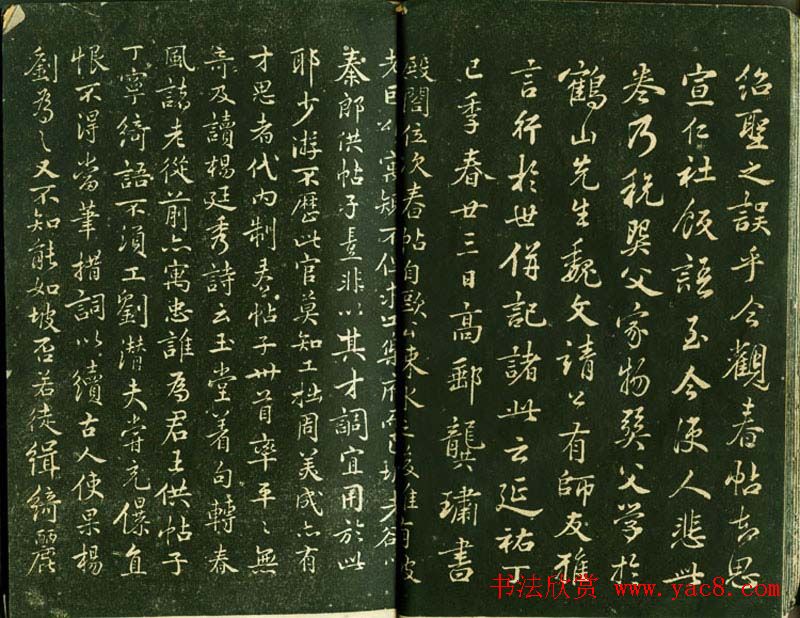 紹聖之誤乎今觀春帖知思
宣仁社飯語至今使人悲此
卷乃稅巽父家物巽父學於
鶴山先生魏文靖公有師友雅
言行於世併記諸此云延祐丁
巳季春廿三日高郵龔璛書
殿閣位次春帖自歐公涑水之後惟有坡
老
秦郎供帖子豈非以其才調宜用於此
耶少游不歷此官莫知工拙周美成亦有
才思者代內制春帖子卅首率平之無
奇及讀楊廷秀詩云玉堂著句轉春
風諸老從前亦寓忠誰為君王供帖子
丁寧綺語不須工劉潛夫嘗充儤直
恨不得當筆措詞以續古人使果楊
劉為之又不知能如坡否若徒緝綺麗
书法欣赏 www.yac8.com